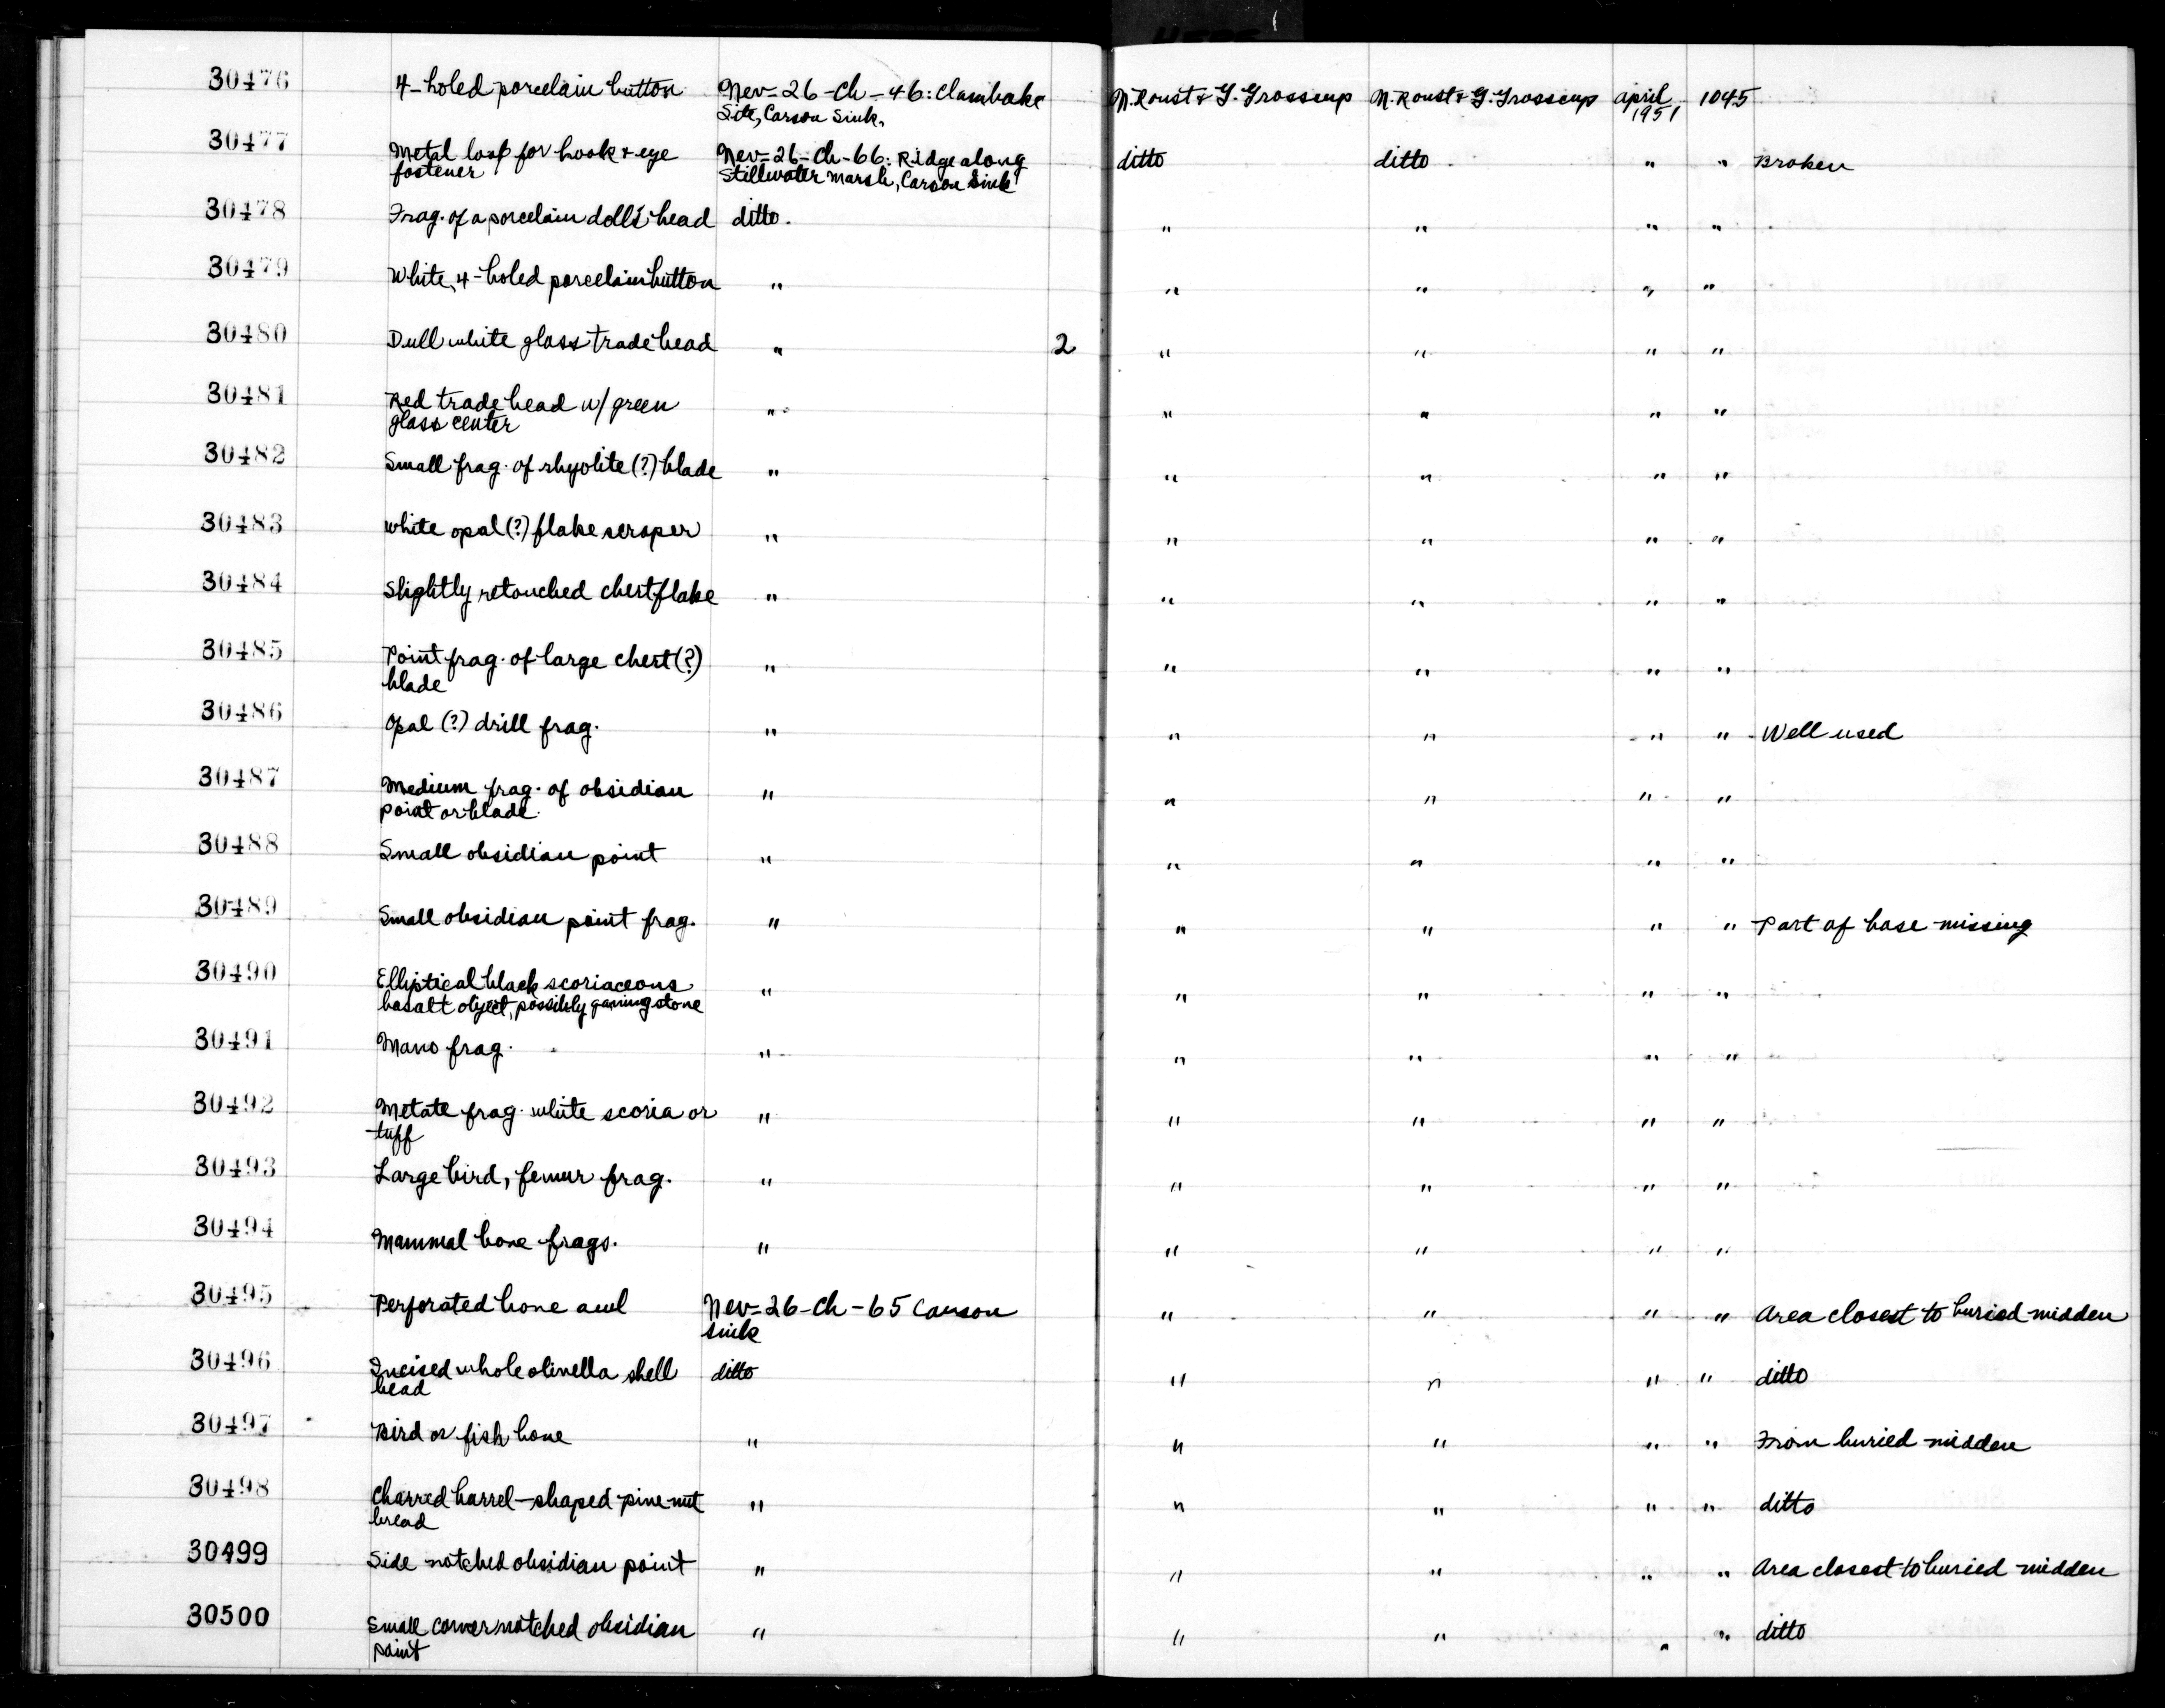 30476 4-holed porcelain button Nev-26-Ch-46: Clambake N. Roust & G. Grosscup N. Roust & G. Grosscup April 1045
Site, Carson Sink. 1951
30477 Metal loop for hook & eye Nev-26-Ch-66: Ridge along ditto ditto " " Broken
fastener Stillwater Marsh, Carson Sink
30478 Frag. of a porcelain doll's head ditto. " " " "
30479 White, 4-holed porcelain button " " " " "
30480 Dull white glass trade bead " 2 " " " "
30481 Red trade bead w/ green " " " " "
glass center
30482 Small frag. of rhyolite (?) blade " " " " "
30483 White opal (?) flake scraper " " " " "
30484 Slightly retouched chert flake " " " " "
30485 Point frag. of large chert (?) " " " " "
blade
30486 Opal (?) drill frag. " " " " " Well used
30487 Medium frag. of obsidian " " " " "
point or blade.
30488 Small obsidian point " " " " "
30489 Small obsidian point frag. " " " " " Part of base missing
30490 Elliptical black scoriaceous " " " " "
basalt object, possibly gaming stone
30491 Mano frag. " " " " "
30492 Metate frag. white scoria or " " " " "
tuff
30493 Large bird, femur frag. " " " " "
30494 Mammal bone frags. " " " " "
30495 Perforated bone awl Nev-26-Ch-65 Carson " " " " Area closest to buried midden
Sink
30496 Incised whole olinella shell ditto " " " " ditto
bead
30497 Bird or fish bone " " " " " From buried midden
30498 Charred barrel-shaped pine-nut " " " " " ditto
bead
30499 Side notched obsidian point " " " " " Area closest to buried midden
30500 Small corner notched obsidian " " " " " ditto
point